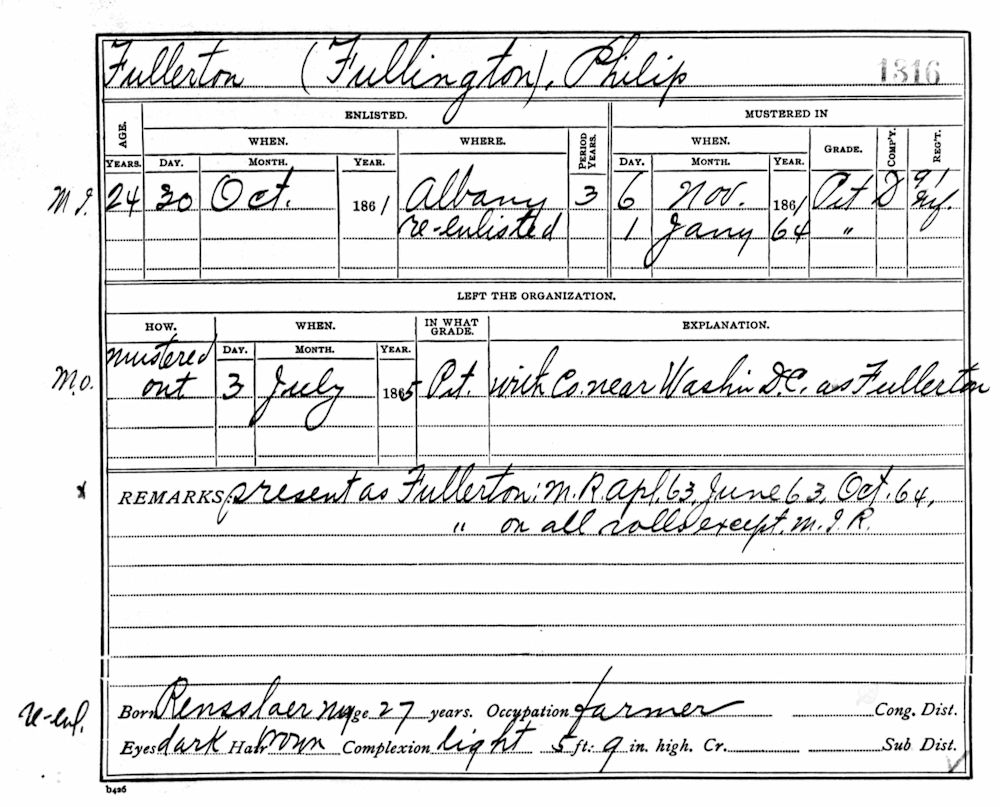 Fullerton (Fullington), Philip 1316
ENLISTED. MUSTERED IN
AGE. WHEN. WHERE. PERIOD YEARS. WHEN. GRADE. COMP'Y. REG'T.
YEARS. DAY. MONTH. YEAR. DAY. MONTH. YEAR.
M.I. 24 30 Oct. 1861 Albany 3 6 Nov. 1861 Pvt D 91 Inf.
re-enlisted 1 Jany 64 "
LEFT THE ORGANIZATION.
HOW. WHEN. IN WHAT GRADE. EXPLANATION.
DAY. MONTH. YEAR.
mustered
M.O. out 3 July 1865 Pvt. with Co. near Washn D.C. as Fullerton
x REMARKS: present as Fullerton: M.R. Apl. 63, June 63, Oct. 64,
" on all rolls except M.I.R.
re-enl. Born Rensslaer NY Age 27 years. Occupation farmer Cong. Dist.
Eyes dark Hair brown Complexion light 5 ft. 9 in. high. Cr. Sub Dist.
b426